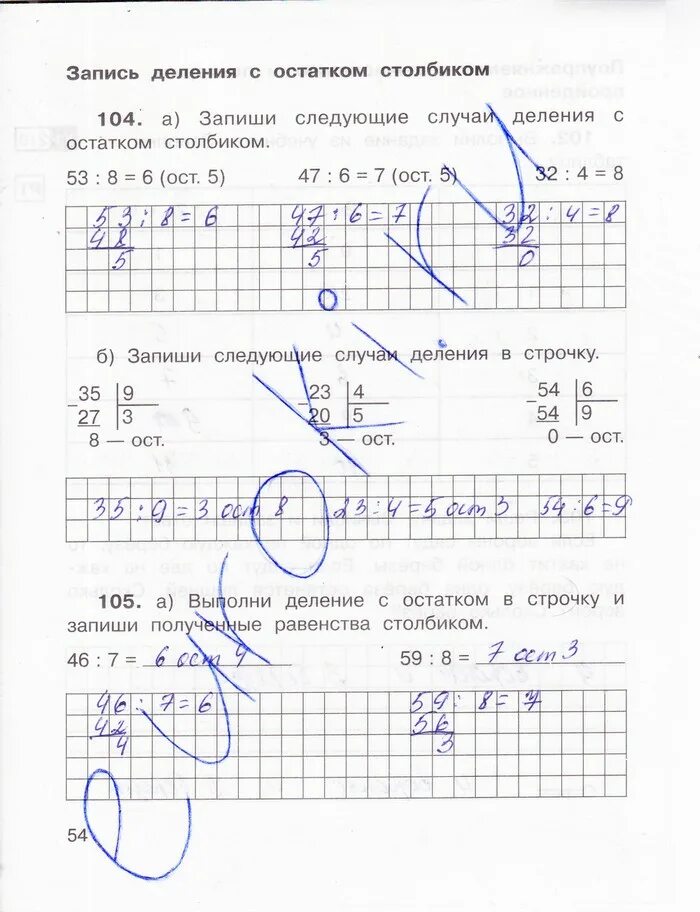 Запись деления с остатком столбиком
104. а) Запиши следующие случаи деления с
остатком столбиком.
53 : 8 = 6 (ост. 5) 47 : 6 = 7 (ост. 5) 32 : 4 = 8
53 : 8 = 6 47 : 6 = 7 32 : 4 = 8
48 42 32
5 5 0
б) Запиши следующие случаи деления в строчку.
35 9 23 4 54 6
27 3 20 5 54 9
8 — ост. 3 — ост. 0 — ост.
35 : 9 = 3 ост 8 23 : 4 = 5 ост 3 54 : 6 = 9
105. а) Выполни деление с остатком в строчку и
запиши полученные равенства столбиком.
46 : 7 = 6 ост 4 59 : 8 = 7 ост 3
46 : 7 = 6 59 : 8 = 7
42 56
4 3
54